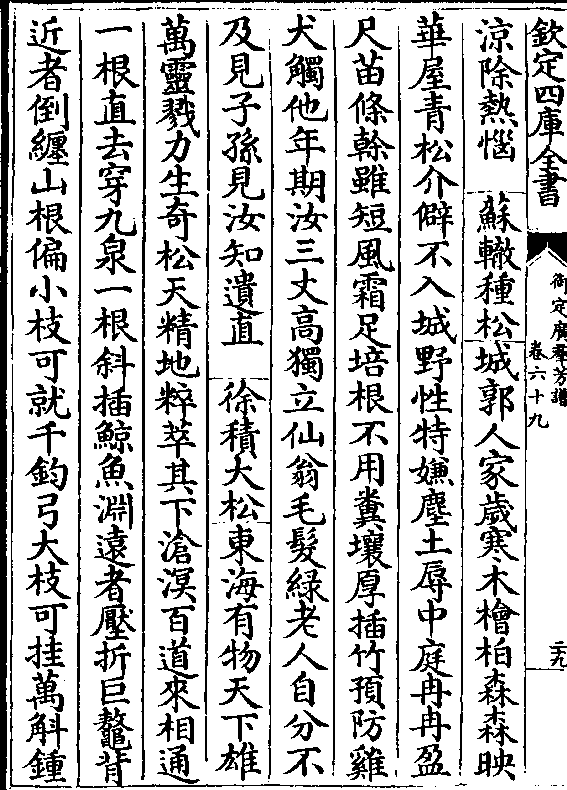 欽定四庫全書
御定廣羣芳譜
卷六十九
二九
涼除熱惱　蘇轍種松城郭人家歲寒木檜柏森森映
華屋青松介僻不入城野性特嫌塵土辱中庭冉冉盈
尺苗條榦雖短風霜足培根不用糞壤厚插竹預防雞
犬觸他年期汝三丈高獨立仙翁毛髮綠老人自分不
及見子孫見汝知遺直　徐積大松東海有物天下雄
萬靈戮力生奇松天精地粹萃其下滄溟百道來相通
一根直去穿九泉一根斜插鯨魚淵遠者壓折巨鼇背
近者倒纏山根偏小枝可就千鈞弓大枝可挂萬斛鍾